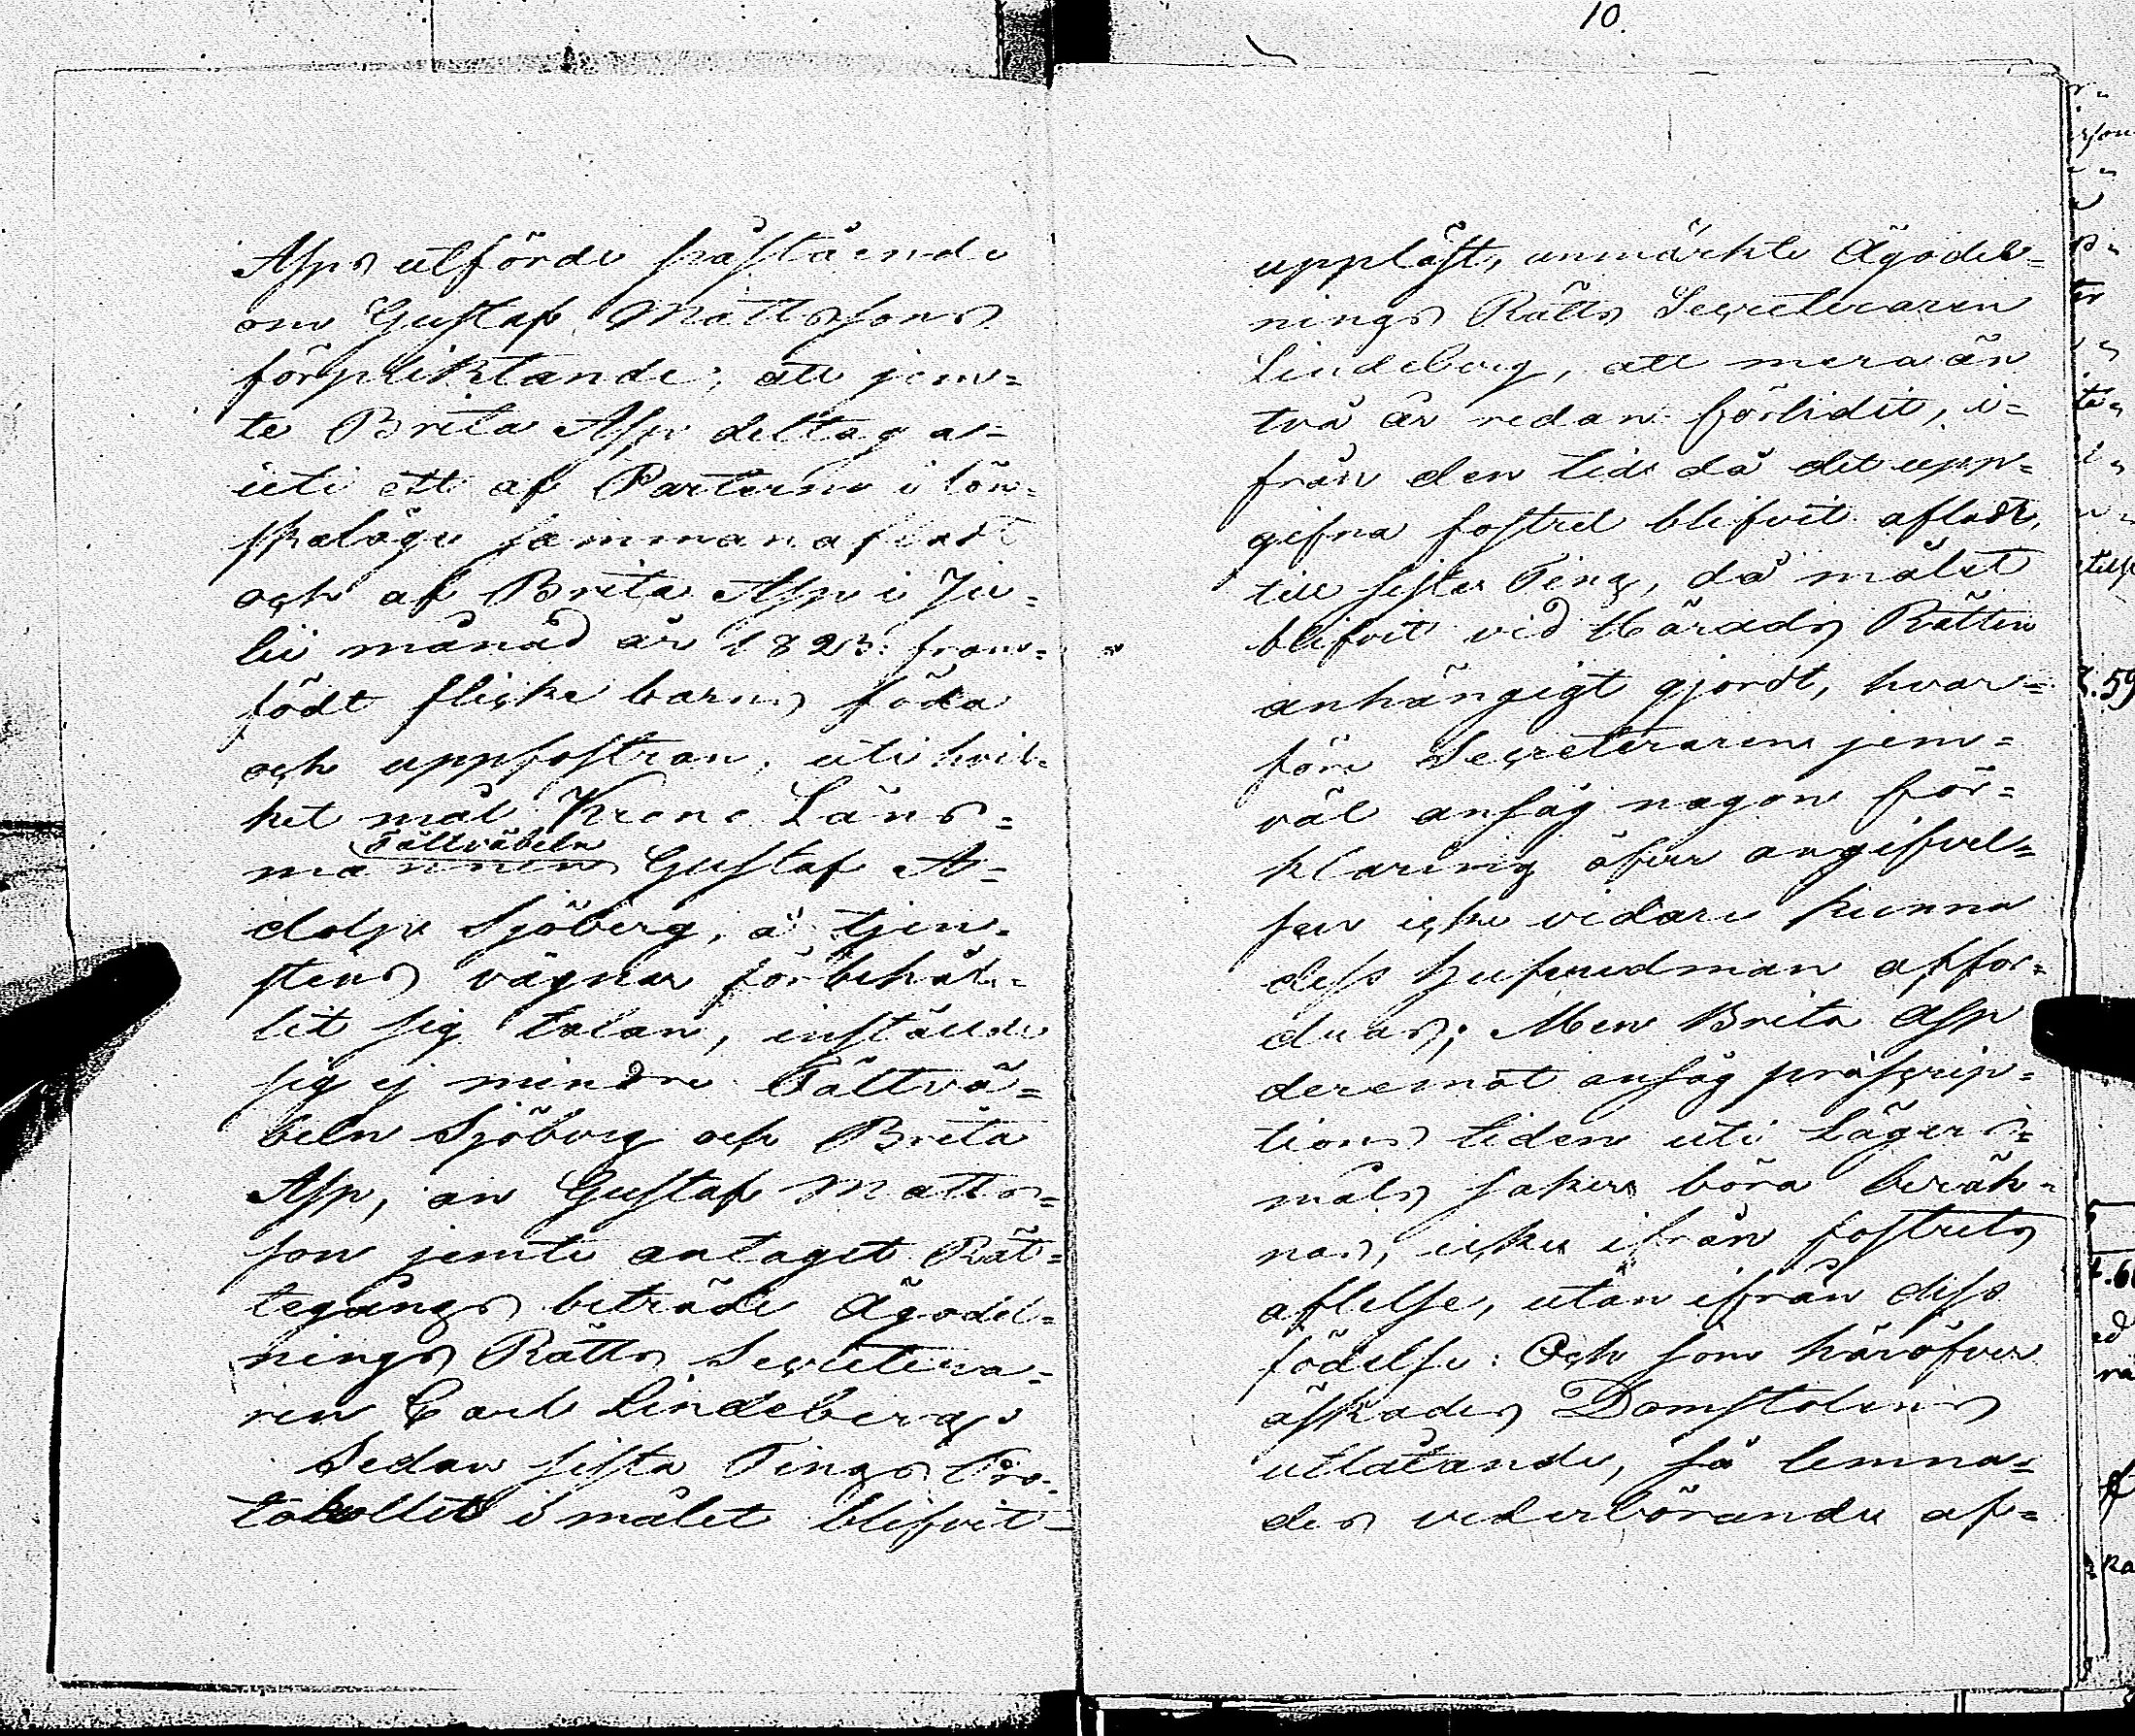 10.
Asps utförde påstående
om Gustaf Mattssons
förpliktande, att jem=
te Brita Asp deltaga
uti ett af Parterne i lön=
skaläge sammanafladt
och af Brita Asp i Ju=
lii månad år 1823. fram=
födt flicke barns föda
och uppfostran, uti hvil=
ket mål Krono Läns=
Fältväbeln
mannen Gustaf A=
dolph Sjöberg, å tjen=
stens vägnar förbehål=
lit sig talan, instälde
sig ej mindre Fältvä=
beln Sjöberg och Brita
Asp, än Gustaf Matts=
son jemte antaget Rät=
tegångs biträde Ägodel=
nings Rätts Secretera=
ren Carl Lindeberg.
Sedan sista Tings Pro=
tokollet i målet blifvit
uppläst, anmärkte Ägodel=
nings Rätts Secreteraren
Lindeberg, att mera än
två år redan förlidit, i=
från den tid då det upp=
gifna fostret blifvit afladt,
till sista Ting, då målet
blifvit vid Härads Rätten
anhängigt gjordt, hvar=
före Secreteraren jem=
väl ansåg någon för=
klaring öfver angifvel=
sen icke vidare kunna
dess hufvudman affor=
dras; Men Brita Asp
deremot ansåg präscrip=
tions tiden uti Lägers=
måls saker böra beräk=
nas, icke ifrån fostrets
aflelse, utan ifrån dess
födelse: Och som häröfver
äskades Domstolens
utlåtande, så lemna=
des vederbörande af=